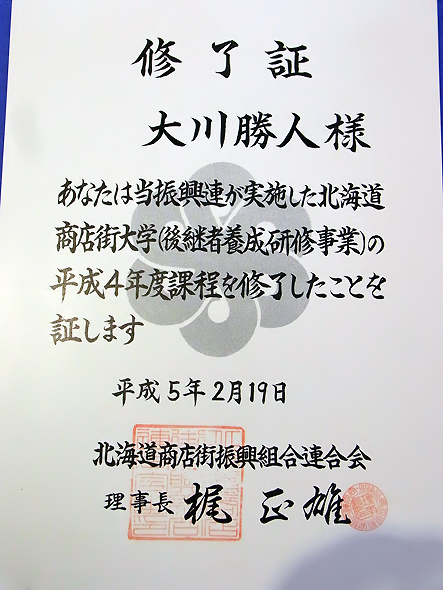 修了証
大川勝人様
あなたは当振興連が実施した北海道
商店街大学(後継者養成研修事業)の
平成4年度課程を修了したことを
証します
平成5年2月19日
北海道商店街振興組合連合会
理事長 梶 正雄